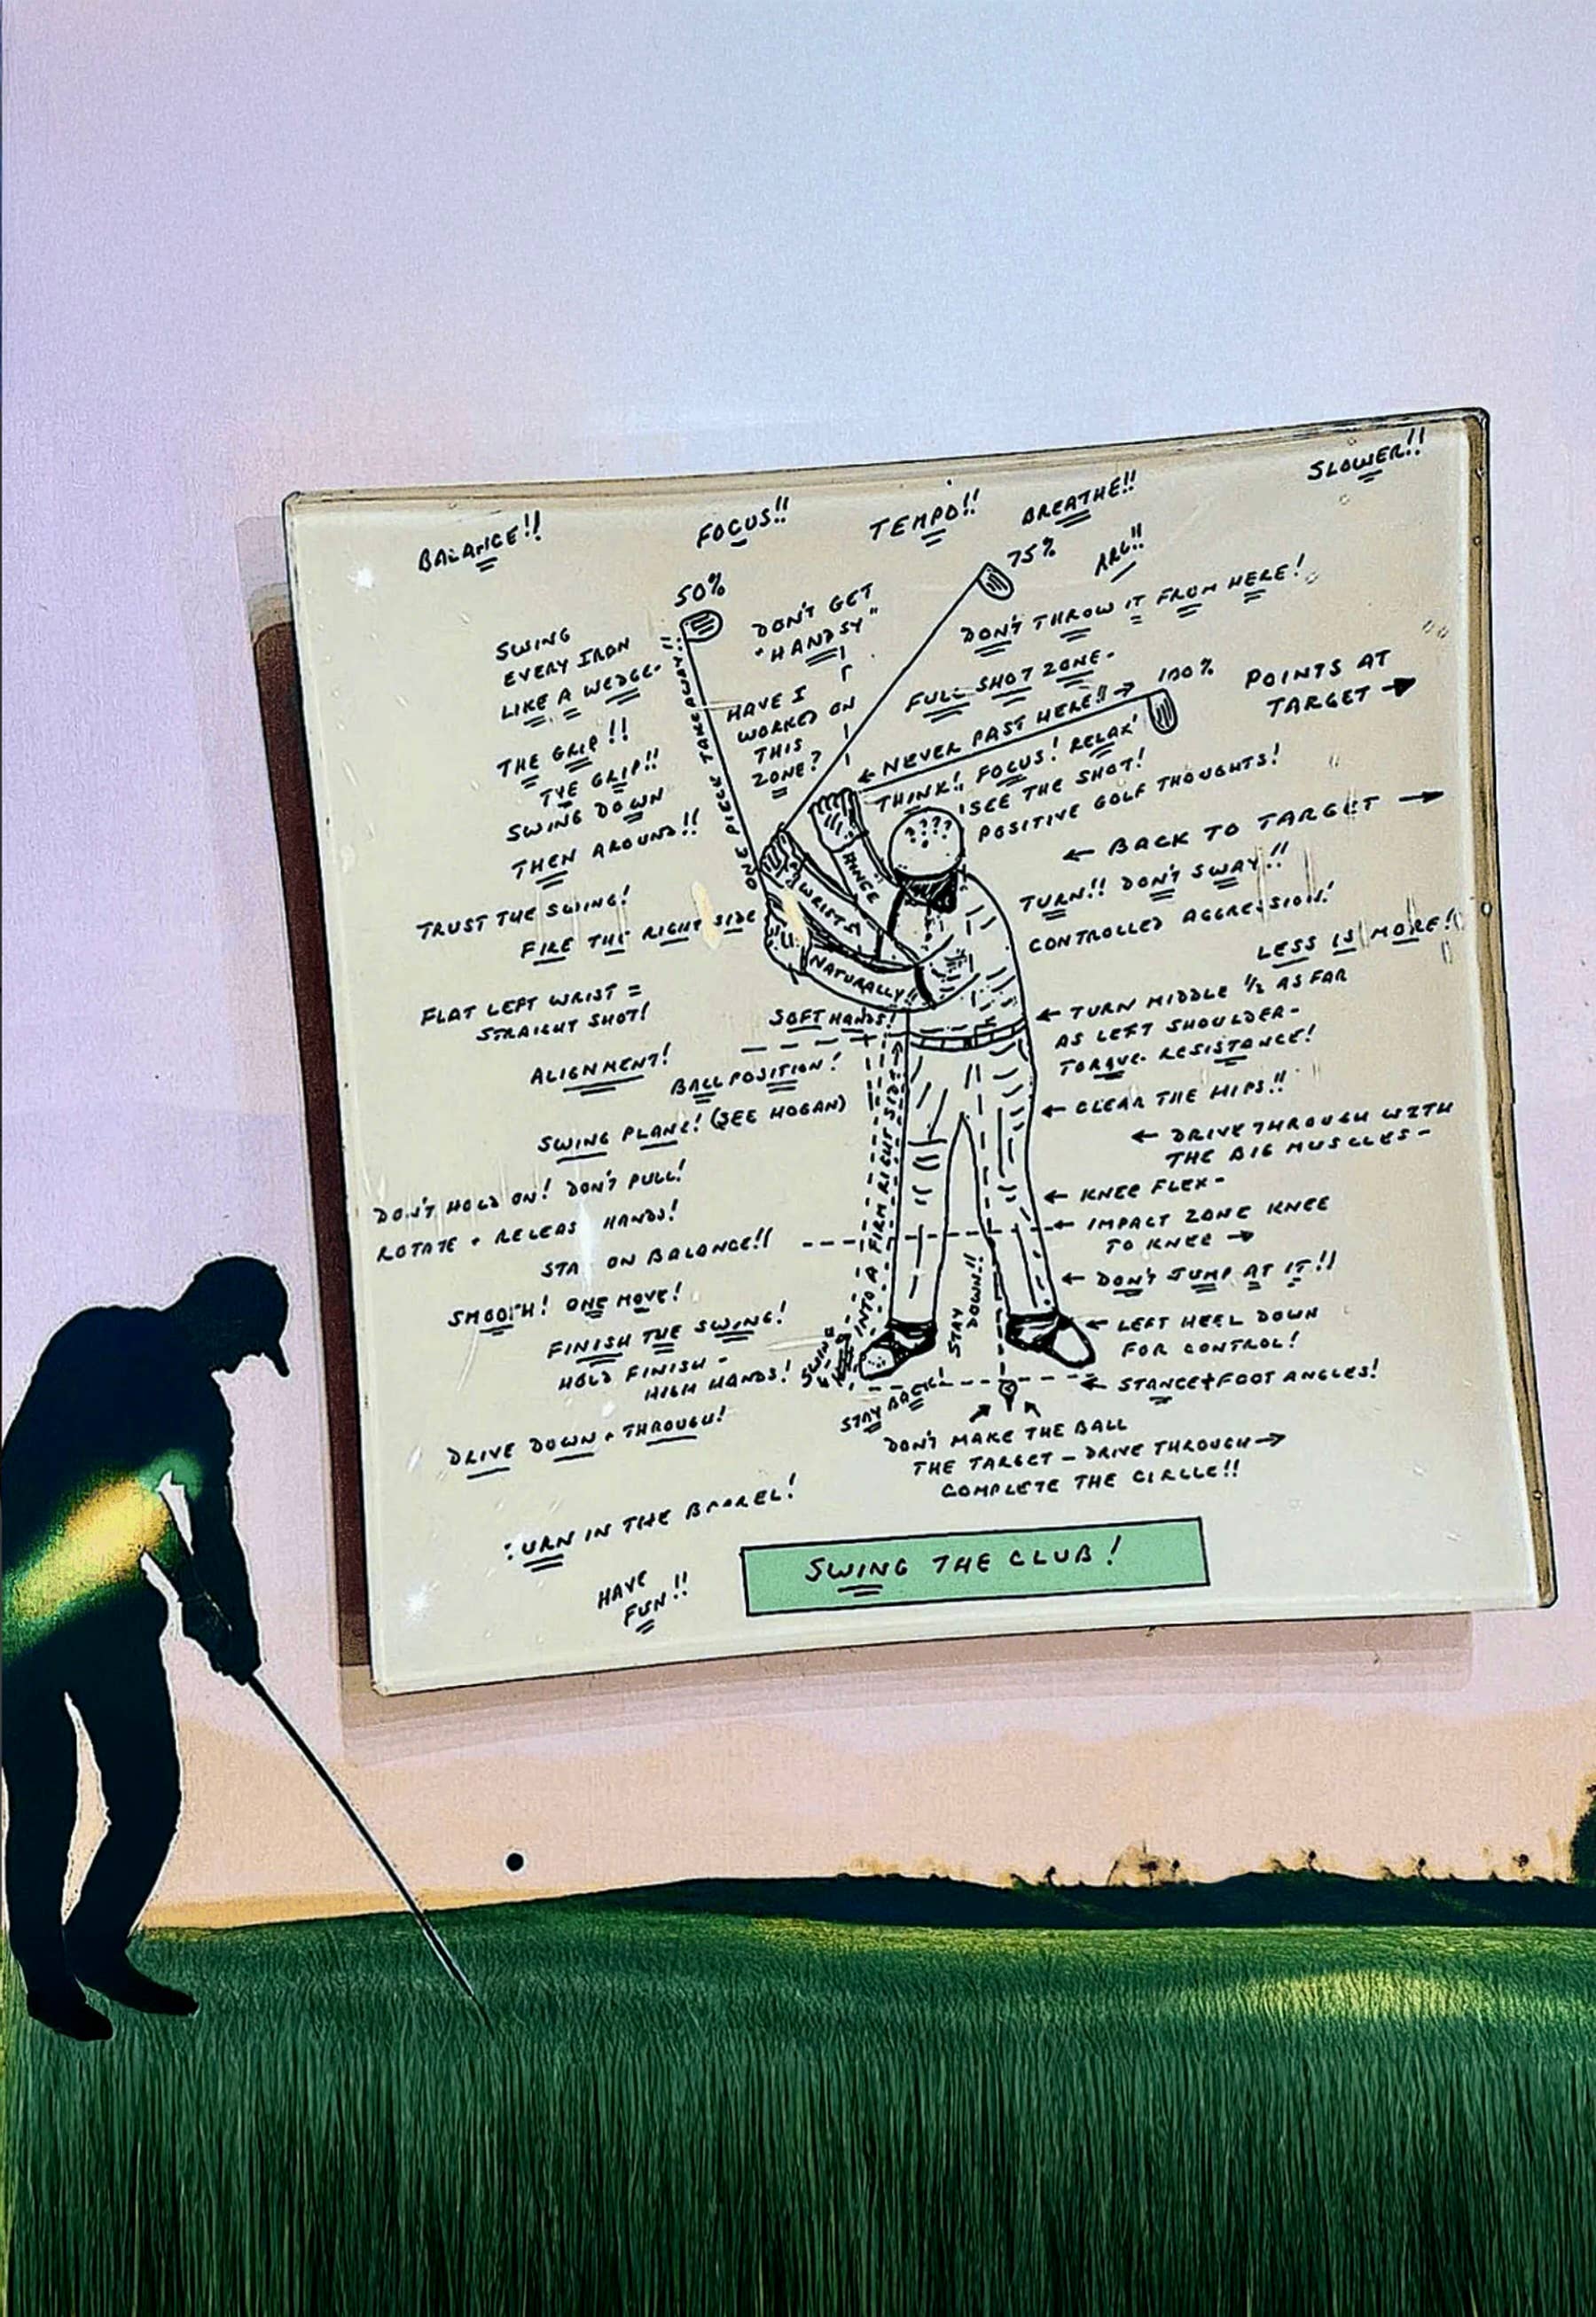 BALANCE!!
FOCUS!!
TEMPO!!
BREATHE!!
SLOWER!!
50%
75%
ARC!!
SWING
EVERY IRON
LIKE A WEDGE-
DON'T GET
"HANDSY"
DON'T THROW IT FROM HERE!
ONE PIECE TAKEAWAY!!
HAVE I
WORKED ON
THIS
ZONE?
FULL SHOT ZONE-
100%
POINTS AT
TARGET →
← NEVER PAST HERE!! →
THE GRIP!!
THE GRIP!!
SWING DOWN
THEN AROUND!!
THINK!! FOCUS! RELAX!
SEE THE SHOT!
POSITIVE GOLF THOUGHTS!
????
← BACK TO TARGET →
HINGE
WRISTS
NATURALLY!!
TURN!! DON'T SWAY!!
CONTROLLED AGGRESSION!
LESS IS MORE!!
TRUST THE SWING!
FIRE THE RIGHT SIDE
FLAT LEFT WRIST =
STRAIGHT SHOT!
SOFT HANDS!
← TURN MIDDLE 1/2 AS FAR
AS LEFT SHOULDER-
TORQUE- RESISTANCE!
ALIGNMENT!
BALL POSITION!
SWING PLANE! (SEE HOGAN)
← CLEAR THE HIPS!!
← DRIVE THROUGH WITH
THE BIG MUSCLES-
DON'T HOLD ON! DON'T PULL!
ROTATE + RELEAS HANDS!
STA ON BALANCE!!
← KNEE FLEX-
← IMPACT ZONE KNEE
TO KNEE →
SMOOTH! ONE MOVE!
FINISH THE SWING!
HOLD FINISH -
HIGH HANDS!
SWING INTO A FIRM RIGHT SIDE
STAY
DOWN!!
← DON'T JUMP AT IT!!
← LEFT HEEL DOWN
FOR CONTROL!
← STANCE + FOOT ANGLES!
STAY BACK!
DRIVE DOWN + THROUGH!
DON'T MAKE THE BALL
THE TARGET - DRIVE THROUGH →
COMPLETE THE CIRCLE!!
TURN IN THE BARREL!
HAVE
FUN!!
SWING THE CLUB!